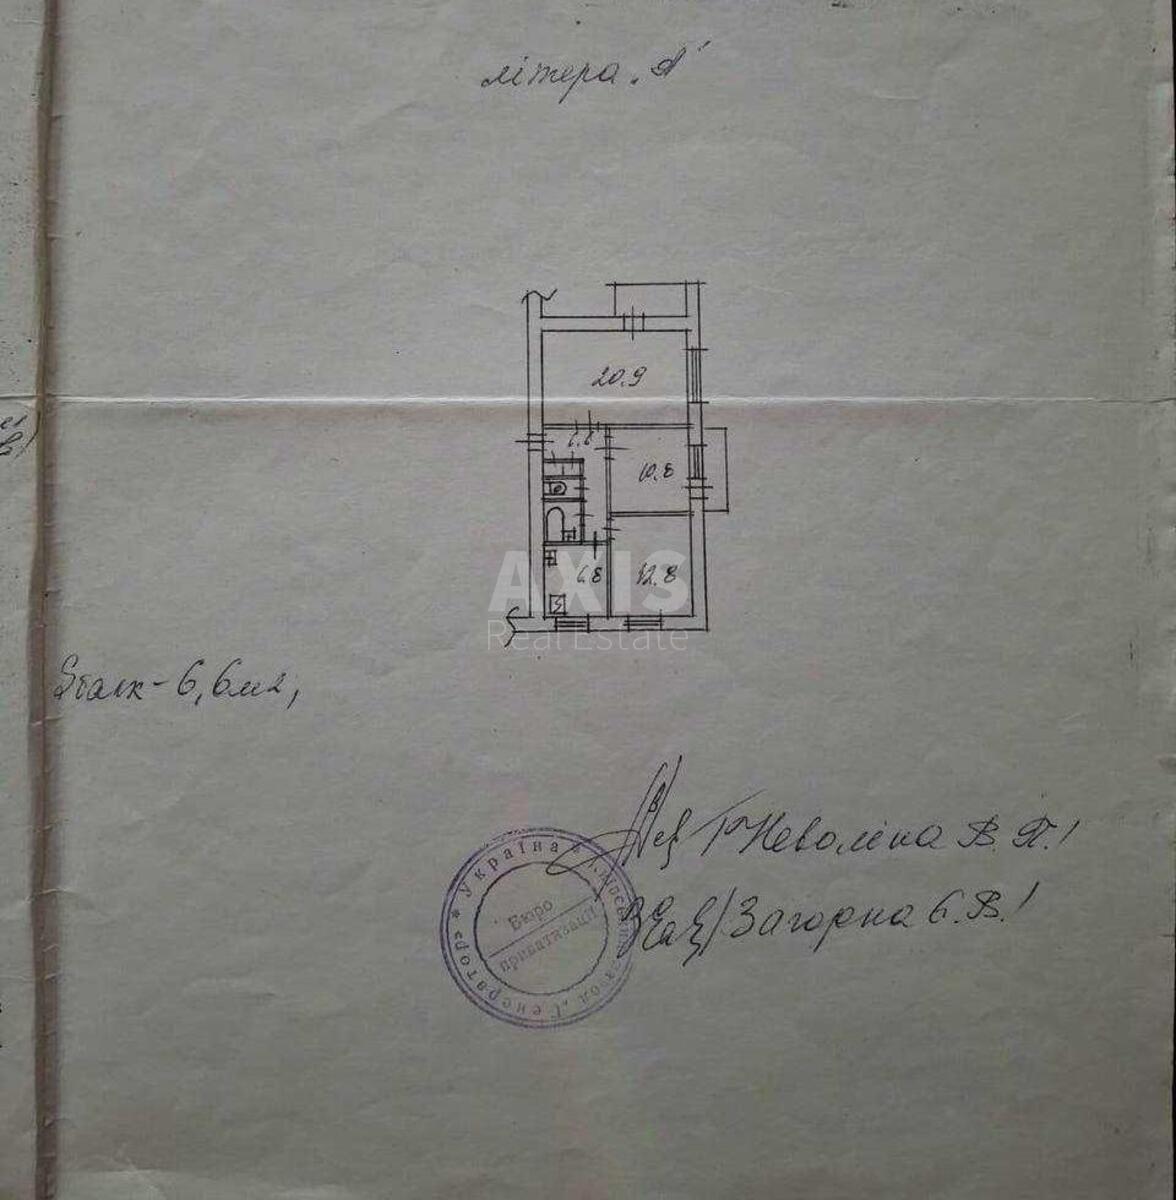 літера „А"
20.9
10.8
6.8
12.8
AXIS
Real Estate
6,6м2,
Неволіна В.П.
Загорна Є.В.
* Україна *
завод „Генератор"
Бюро
приватизації